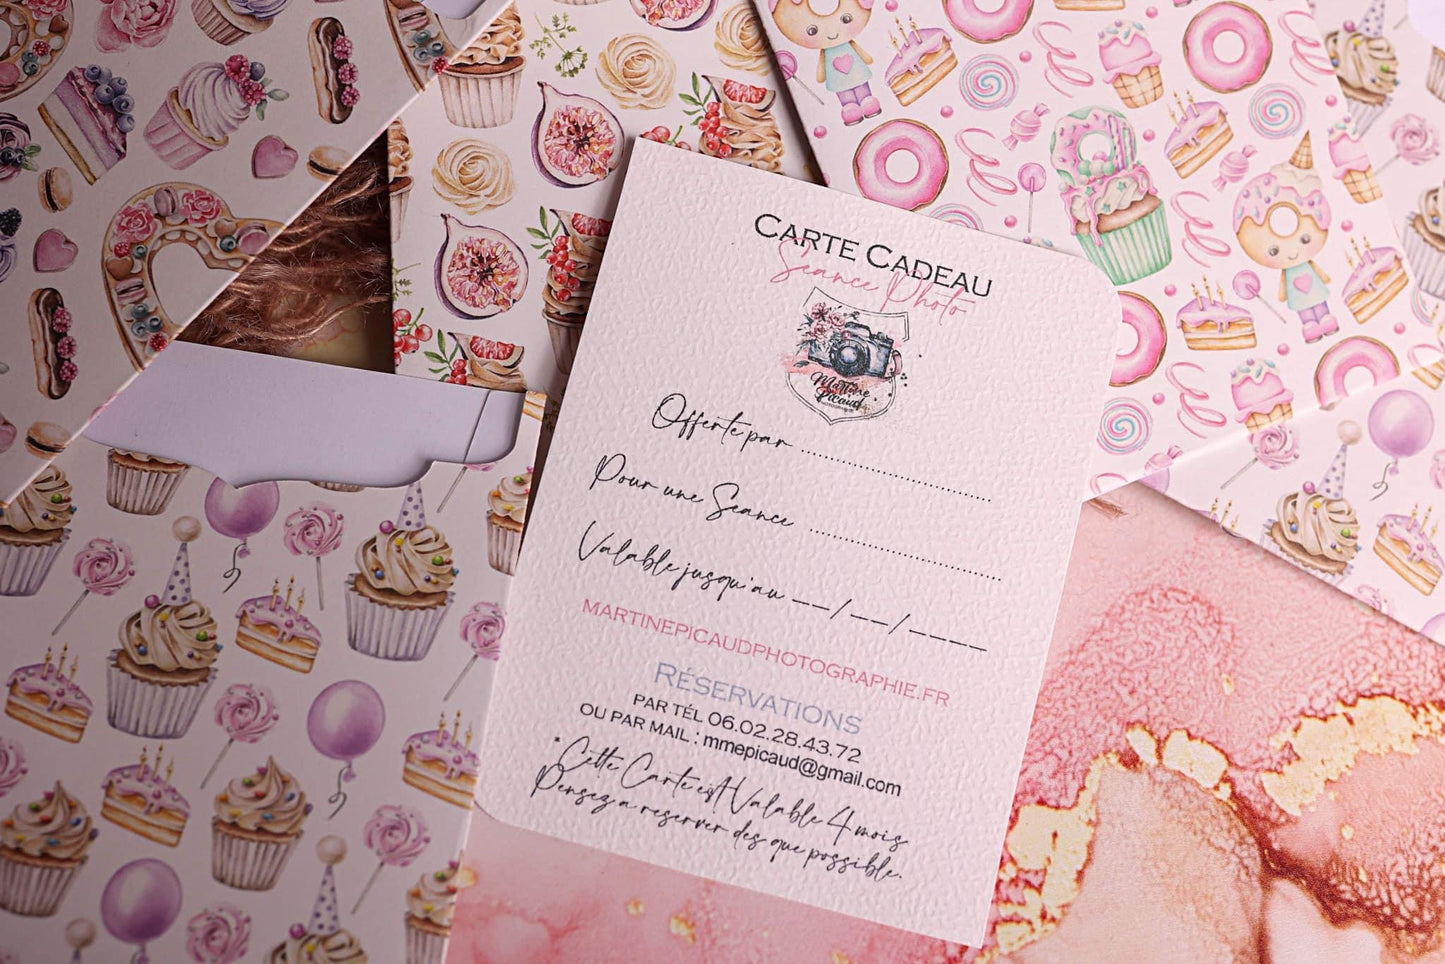 CARTE CADEAU
Séance Photo
Martine
Picaud
Offerte par ..............................
Pour une Seance ..............................
Valable jusqu'au __/__/____
MARTINEPICAUDPHOTOGRAPHIE.FR
RÉSERVATIONS
PAR TÉL 06.02.28.43.72
OU PAR MAIL : mmepicaud@gmail.com
*Cette Carte est Valable 4 mois
Pensez a reserver des que possible.